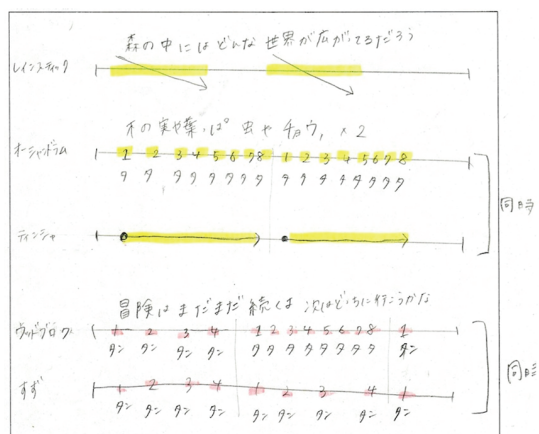 森の中にはどんな世界が広がてるだろう
レインスティック
木の実や葉っぱ 虫やチョウ, ×2
オーシャンドラム 1 2 3 4 5 6 7 8 1 2 3 4 5 6 7 8
タ タ タ タ タ タ タ タ タ タ タ タ タ タ タ タ
同時
ティンシャ
冒険はまだまだ続くよ 次はどちに行こうかな
ウッドブロック 1 2 3 4 1 2 3 4 5 6 7 8 1
タン タン タン タン タ タ タ タ タ タ タ タ タン
同時
すず 1 2 3 4 1 2 3 4 1
タン タン タン タン タン タン タン タン タン